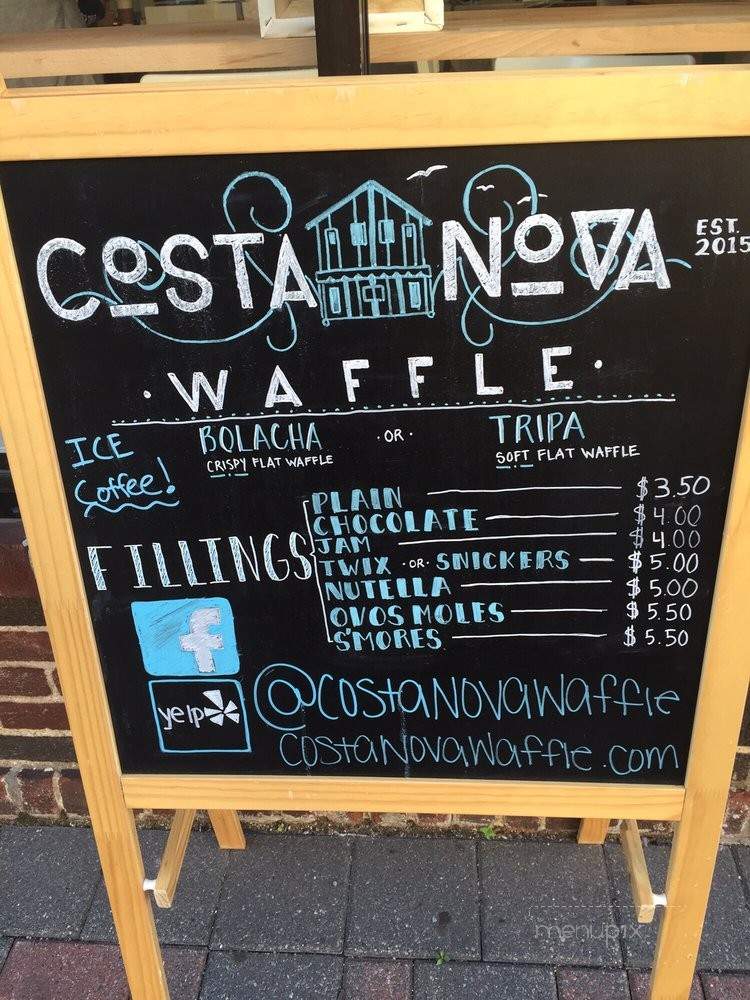 COSTA NOVA
EST.
2015
· WAFFLE ·
ICE
Coffee!
BOLACHA · OR · TRIPA
CRISPY FLAT WAFFLE SOFT FLAT WAFFLE
FILLINGS
PLAIN $3.50
CHOCOLATE $4.00
JAM $4.00
TWIX · OR · SNICKERS $5.00
NUTELLA $5.00
OVOS MOLES $5.50
S'MORES $5.50
f
yelp
@COSTANOVAWAFFLE
COSTANOVAWAFFLE.COM
menupix